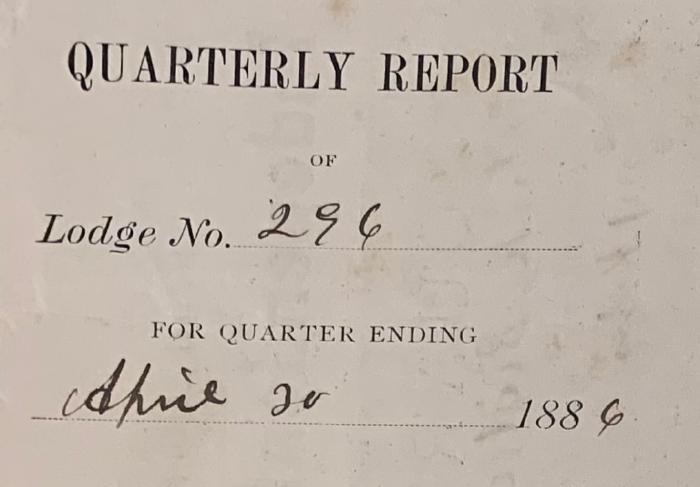 QUARTERLY REPORT
OF
Lodge No. 296
FOR QUARTER ENDING
April 20 1886